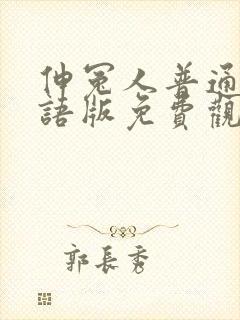 伸冤人普通
語版免費觀
郭長秀